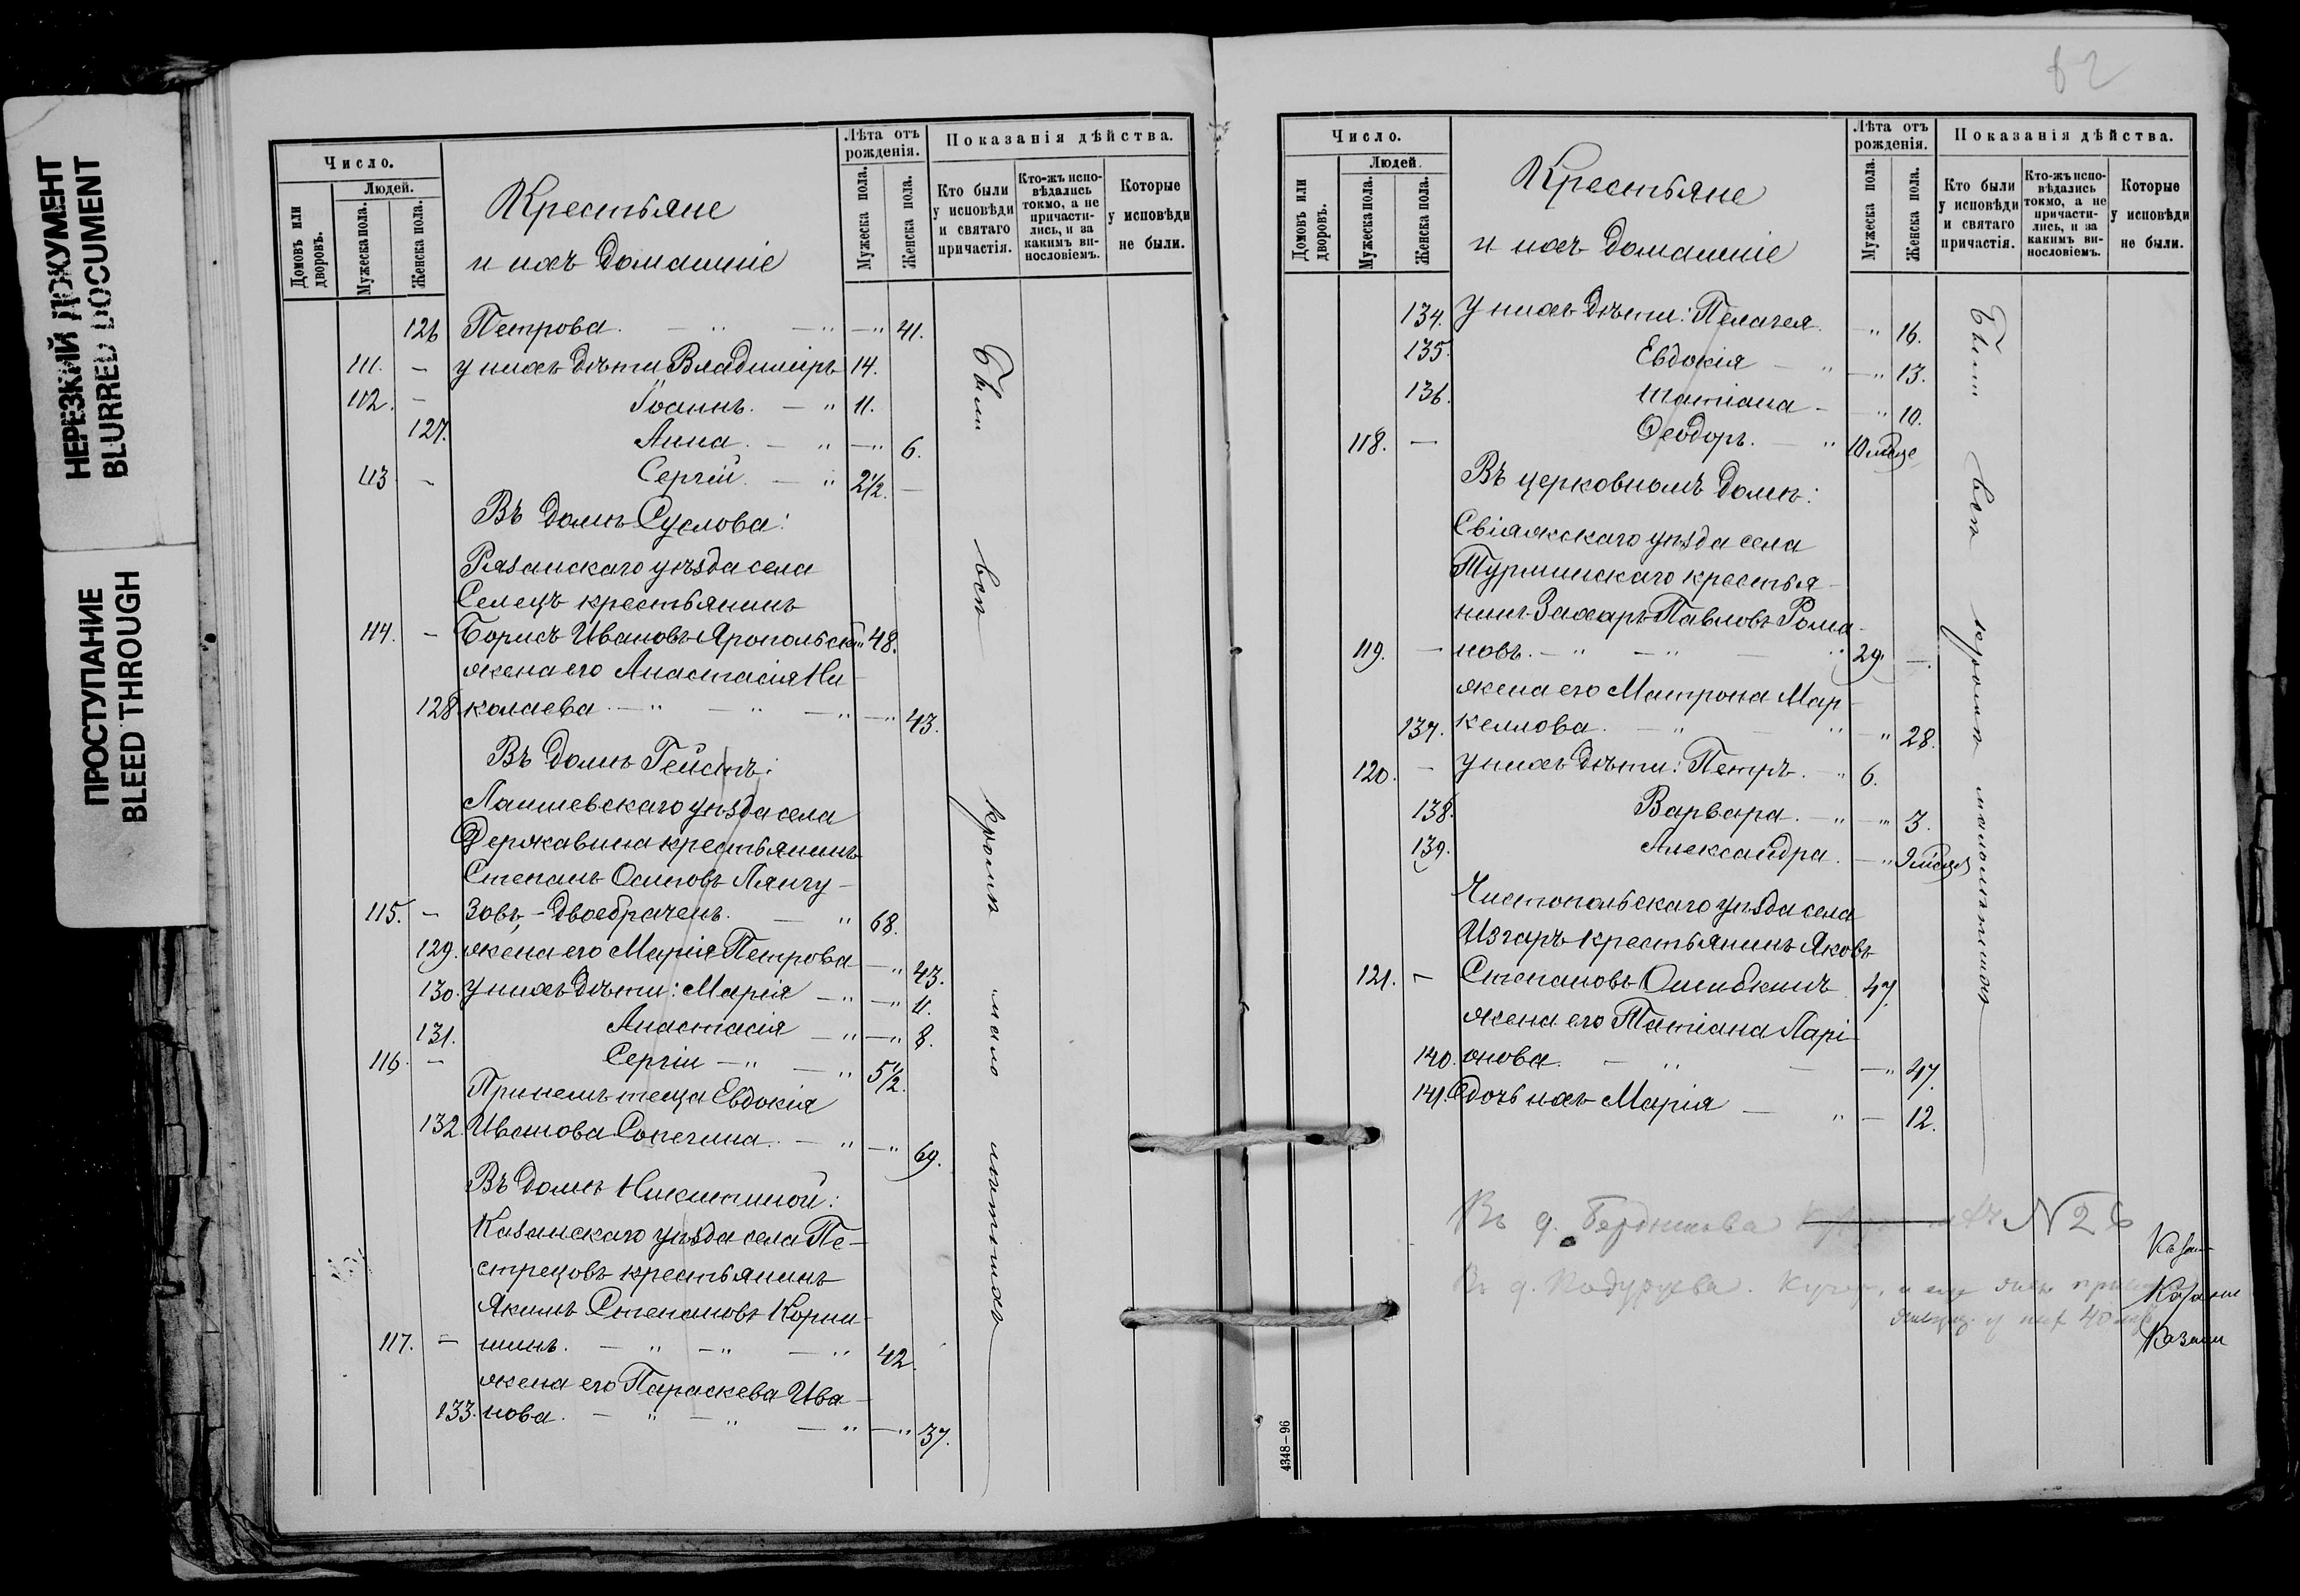 НЕРЕЗКИЙ ДОКУМЕНТ
BLURRED DOCUMENT
ПРОСТУПАНИЕ
BLEED THROUGH
Число.
Людей.
Домовъ или дворовъ.
Мужеска пола.
Женска пола.
Крестьяне
и ихъ домашніе
Лѣта отъ рожденія.
Мужеска пола.
Женска пола.
Показанія дѣйства.
Кто были у исповѣди и святаго причастія.
Кто-жъ исповѣдались токмо, а не причастились, и за какимъ винословіемъ.
Которые у исповѣди не были.
126 Петрова. — „ — „ — „ 41.
111. — у нихъ дѣти Владиміръ 14.
112. — Іоаннъ. — „ 11.
127. Анна. — „ — „ 6.
113 — Сергій. — „ 2½. —
Въ домѣ Суслова:
Рязанскаго уѣзда села
Селецъ крестьянинъ
114. — Борисъ Ивановъ Яропольскій 48.
жена его Анастасія Ни-
128. колаева. — „ — „ — „ — „ 43.
Въ домѣ Гейстъ:
Лаишевскаго уѣзда села
Державина крестьянинъ
Степанъ Осиповъ Лянгу-
115. — зовъ, - двоебраченъ. — „ 68.
129. жена его Марія Петрова — „ 43.
130. у нихъ дѣти: Марія — „ — „ 11.
131. Анастасія — „ — „ 8.
116. — Сергій — „ — „ 5½.
При немъ теща Евдокія
132. Иванова Сопегина. — „ — „ 69.
Въ домѣ Никитиной:
Казанскаго уѣзда села Пе-
стрецовъ крестьянинъ
Якимъ Степановъ Корни-
117. — шинъ. — „ — „ — „ 42.
жена его Параскева Ива-
133. нова. — „ — „ — „ — „ 37.
Были всѣ кромѣ малолѣтнихъ
Число.
Людей.
Домовъ или дворовъ.
Мужеска пола.
Женска пола.
Крестьяне
и ихъ домашніе
Лѣта отъ рожденія.
Мужеска пола.
Женска пола.
Показанія дѣйства.
Кто были у исповѣди и святаго причастія.
Кто-жъ исповѣдались токмо, а не причастились, и за какимъ винословіемъ.
Которые у исповѣди не были.
134. У нихъ дѣти: Пелагея. — „ 16.
135. Евдокія — „ — „ 13.
136. Татіана — „ 10.
118. — Ѳеодоръ. — „ 10 мѣсяц
Въ церковномъ домѣ:
Свіяжскаго уѣзда села
Турминскаго крестья-
нинъ Захаръ Павловъ Рома-
119. — новъ. — „ — „ — „ 29. —.
жена его Матрона Мар-
137. келлова. — „ — „ — „ 28.
120. — у нихъ дѣти: Петръ. — „ 6.
138. Варвара. — „ — „ 3.
139. Александра. — „ 9 мѣсяц
Чистопольскаго уѣзда села
Изгаръ крестьянинъ Яковъ
121. — Степановъ Ошибкинъ 47.
жена его Татіана Ларі-
140. онова. — „ — — „ 47.
141. дочь ихъ Марія — „ — 12.
Были всѣ кромѣ малолѣтнихъ
Въ д. N 26
Въ д.
Казани
4348—96